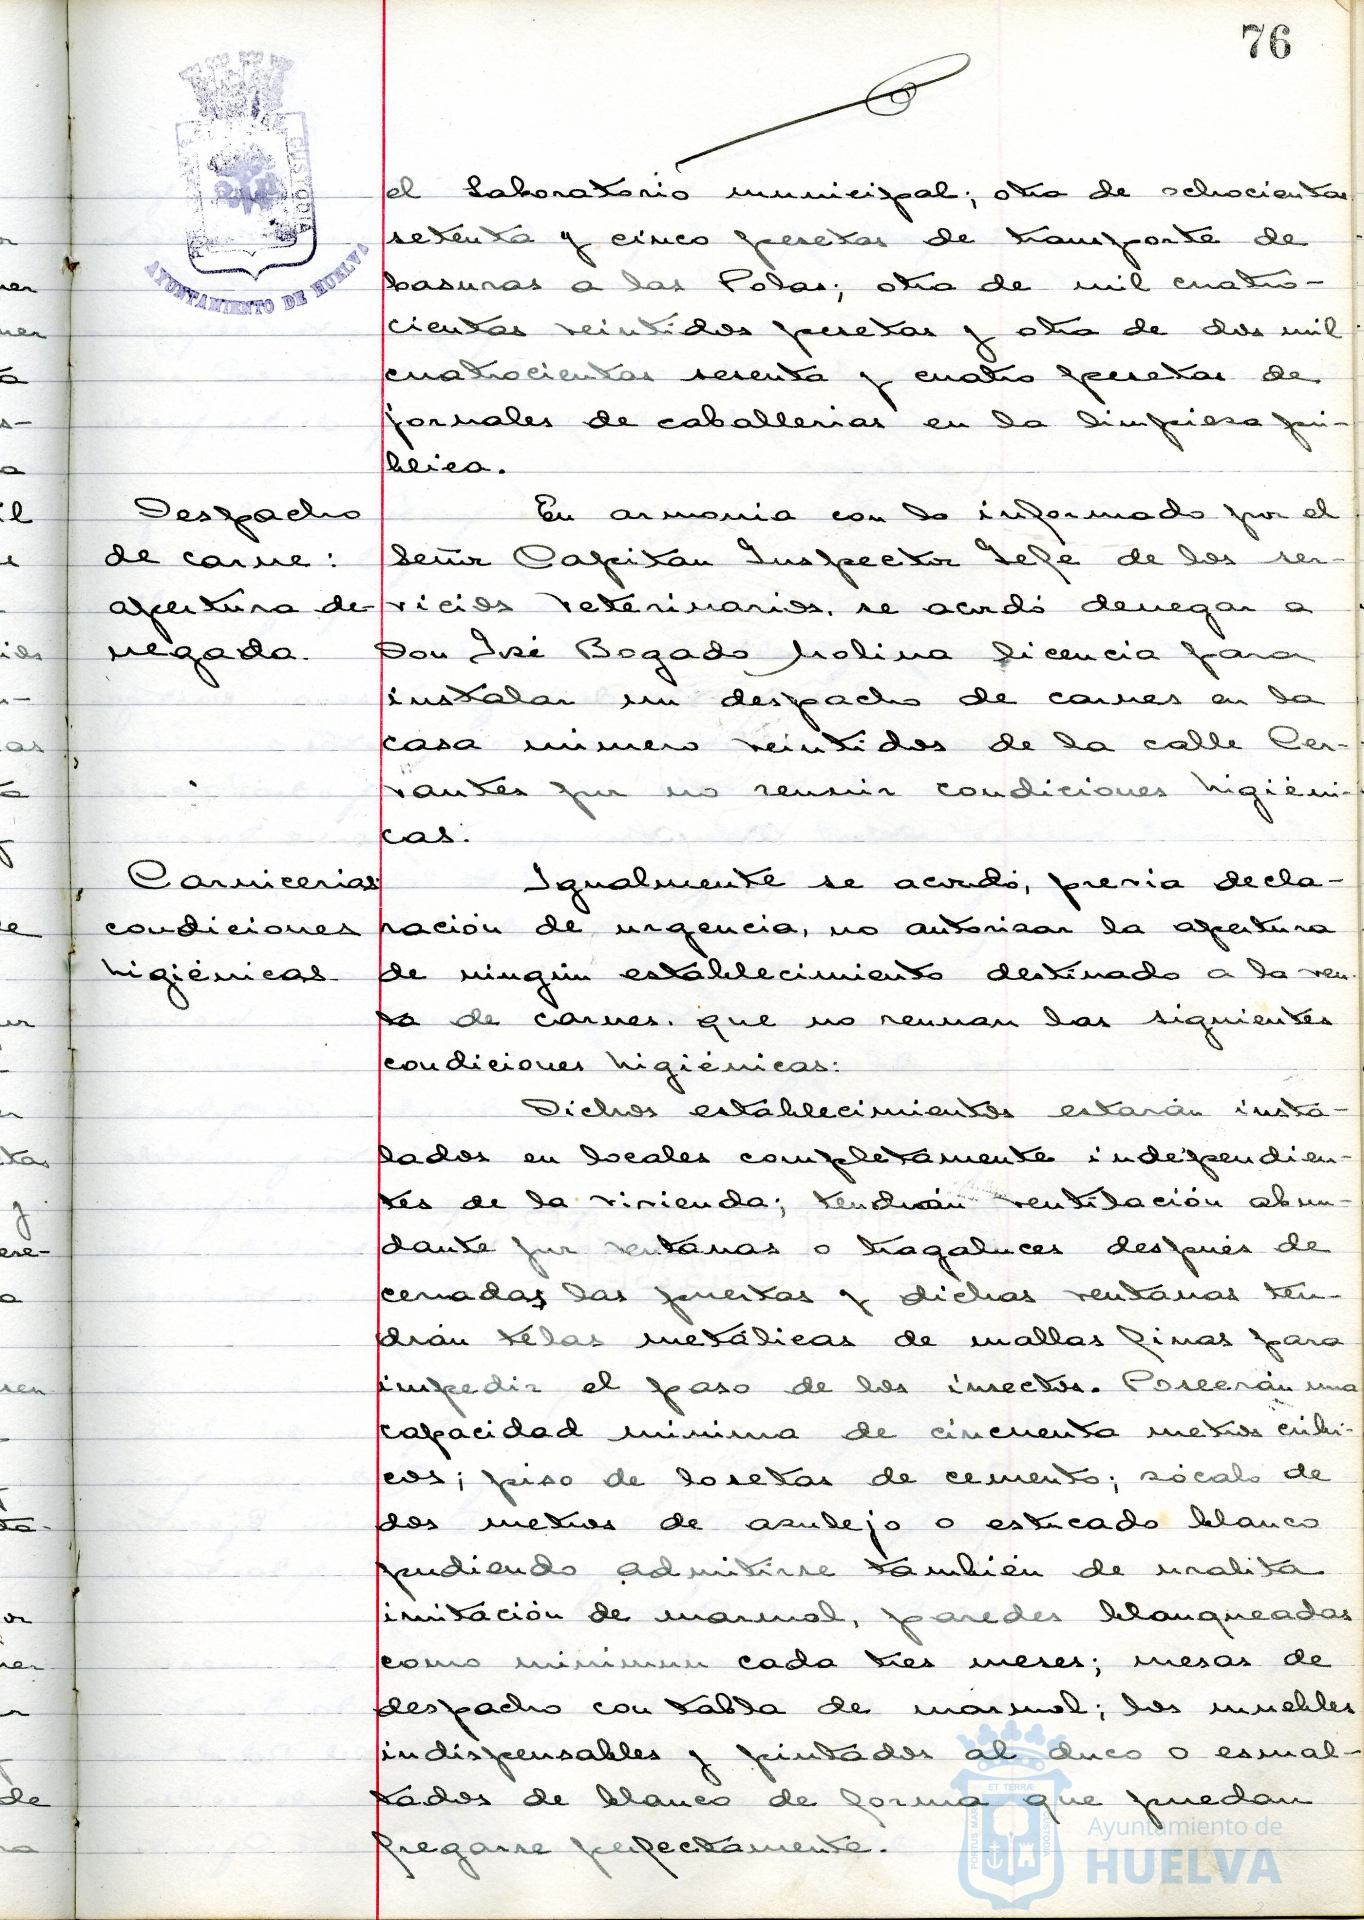 76
CUSTODIA
AYUNTAMIENTO DE HUELVA
el Laboratorio municipal; otra de ochocientas
setenta y cinco pesetas de transporte de
basuras a las Polas; otra de mil cuatro-
cientas veintidos pesetas y otra de dos mil
cuatrocientas sesenta y cuatro pesetas de
jornales de caballerias en la limpieza pú-
blica.
Despacho
de carne:
apertura de-
negada.
En armonia con lo informado por el
Señor Capitan Inspector Jefe de los ser-
vicios Veterinarios, se acordó denegar a
Don José Bogado Molina licencia para
instalar un despacho de carnes en la
casa número veintidos de la calle Cer-
vantes por no reunir condiciones higiéni-
cas.
Carnicerias
condiciones
higiénicas.
Igualmente se acordó, previa decla-
ración de urgencia, no autorizar la apertura
de ningún establecimiento destinado a la ven-
ta de carnes, que no reunan las siguientes
condiciones higiénicas:
Dichos establecimientos estarán insta-
lados en locales completamente independien-
tes de la vivienda; tendrán ventilación abun-
dante por ventanas o tragaluces después de
cerradas las puertas y dichas ventanas ten-
drán telas metálicas de mallas finas para
impedir el paso de los insectos. Poseerán una
capacidad minima de cincuenta metros cúbi-
cos; piso de losetas de cemento; zócalo de
dos metros de azulejo o estucado blanco
pudiendo admitirse también de uralita
imitación de marmol, paredes blanqueadas
como minimun cada tres meses; mesas de
despacho con tabla de marmol; los muebles
indispensables y pintados al duco o esmal-
tados de blanco de forma que puedan
fregarse perfectamente.
Ayuntamiento de
HUELVA